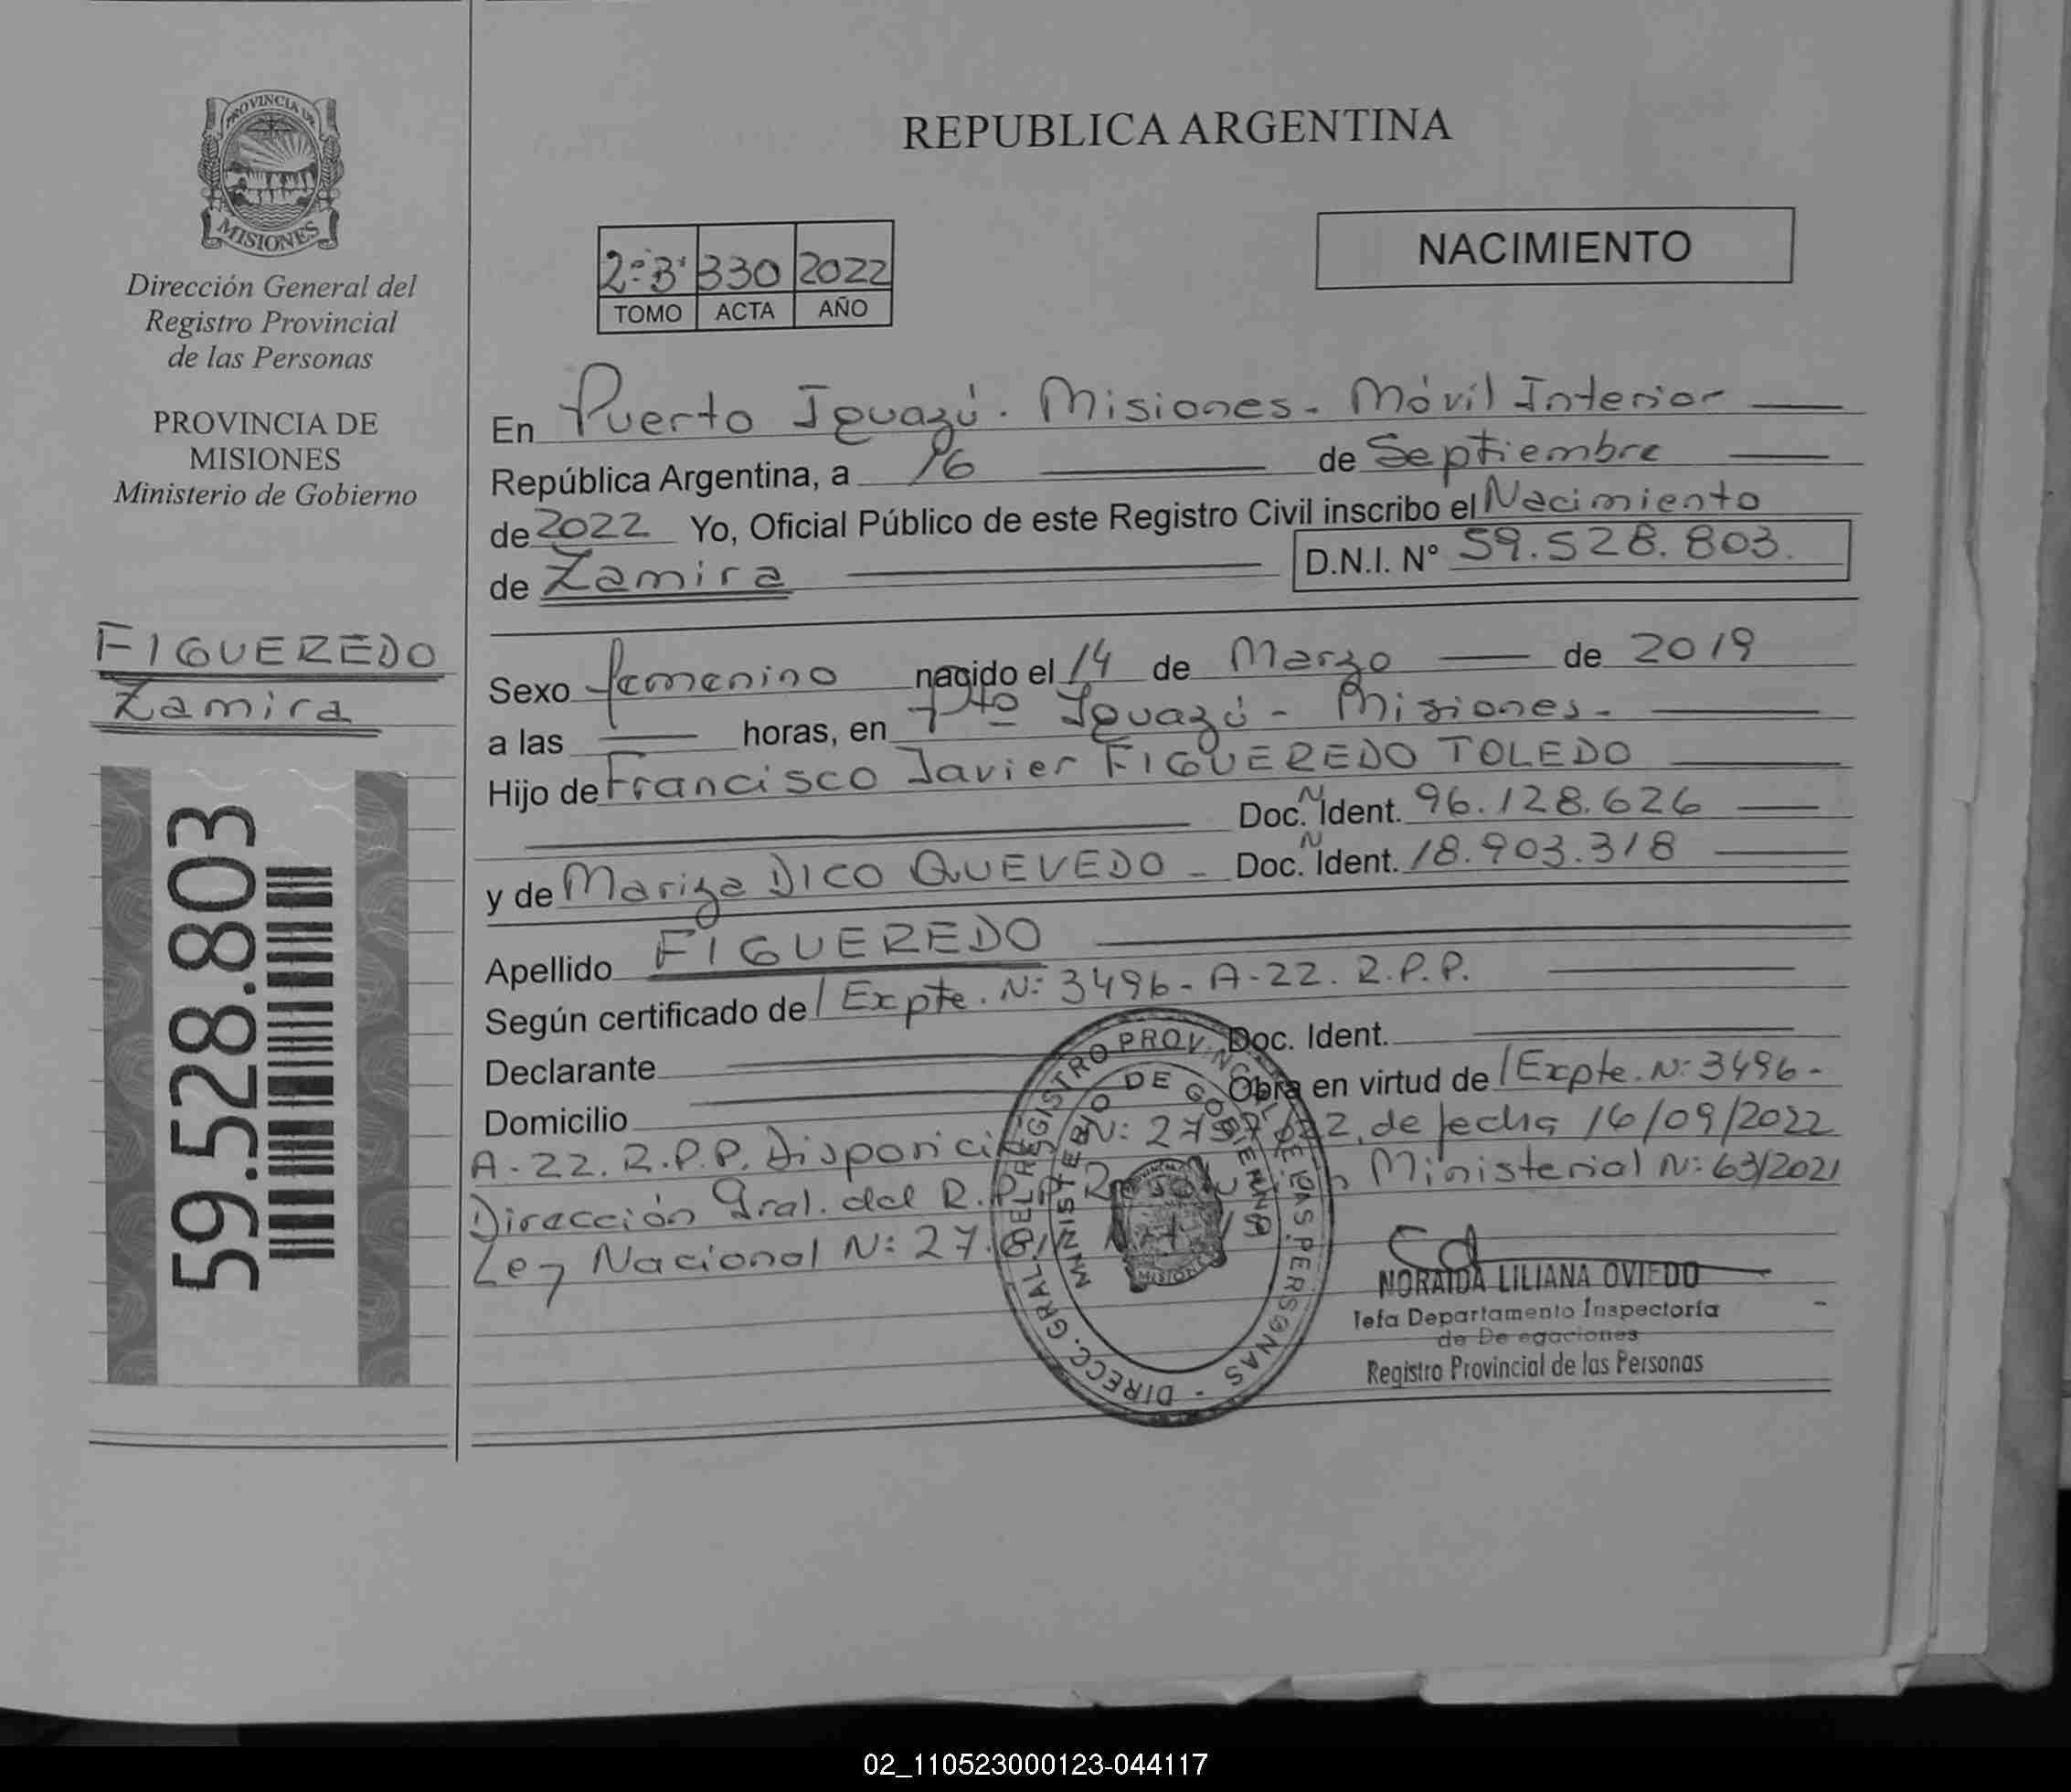 PROVINCIA DE
MISIONES
Dirección General del
Registro Provincial
de las Personas
PROVINCIA DE
MISIONES
Ministerio de Gobierno
FIGUEREDO
Zamira
59.528.803
REPUBLICA ARGENTINA
NACIMIENTO
2º"B" 330 2022
TOMO ACTA AÑO
En Puerto Iguazú. Misiones. Móvil Interior
República Argentina, a 16 de Septiembre
de 2022 Yo, Oficial Público de este Registro Civil inscribo el Nacimiento
de Zamira D.N.I. N° 59.528.803.
Sexo femenino nacido el 14 de Marzo de 2019
a las horas, en Pto Iguazú - Misiones.
Hijo de Francisco Javier FIGUEREDO TOLEDO
Doc. N Ident. 96.128.626
y de Mariza DICO QUEVEDO - Doc. N Ident. 18.903.318
Apellido FIGUEREDO
Según certificado de / Expte. N: 3496- A-22. R.P.P.
Declarante Doc. Ident.
Domicilio Obra en virtud de / Expte. N: 3496-
A-22. R.P.P. Disposición N: 2797 de fecha 16/09/2022
Dirección Gral. del R.P.P. Resolución Ministerial N: 63/2021
Ley Nacional N: 27.
DIRECC. GRAL. DEL REGISTRO PROVINCIAL DE LAS PERSONAS -
MINISTERIO DE GOBIERNO
MISIONES
NORAIDA LILIANA OVIEDO
Jefa Departamento Inspectoría
de De egaciones
Registro Provincial de las Personas
02_110523000123-044117